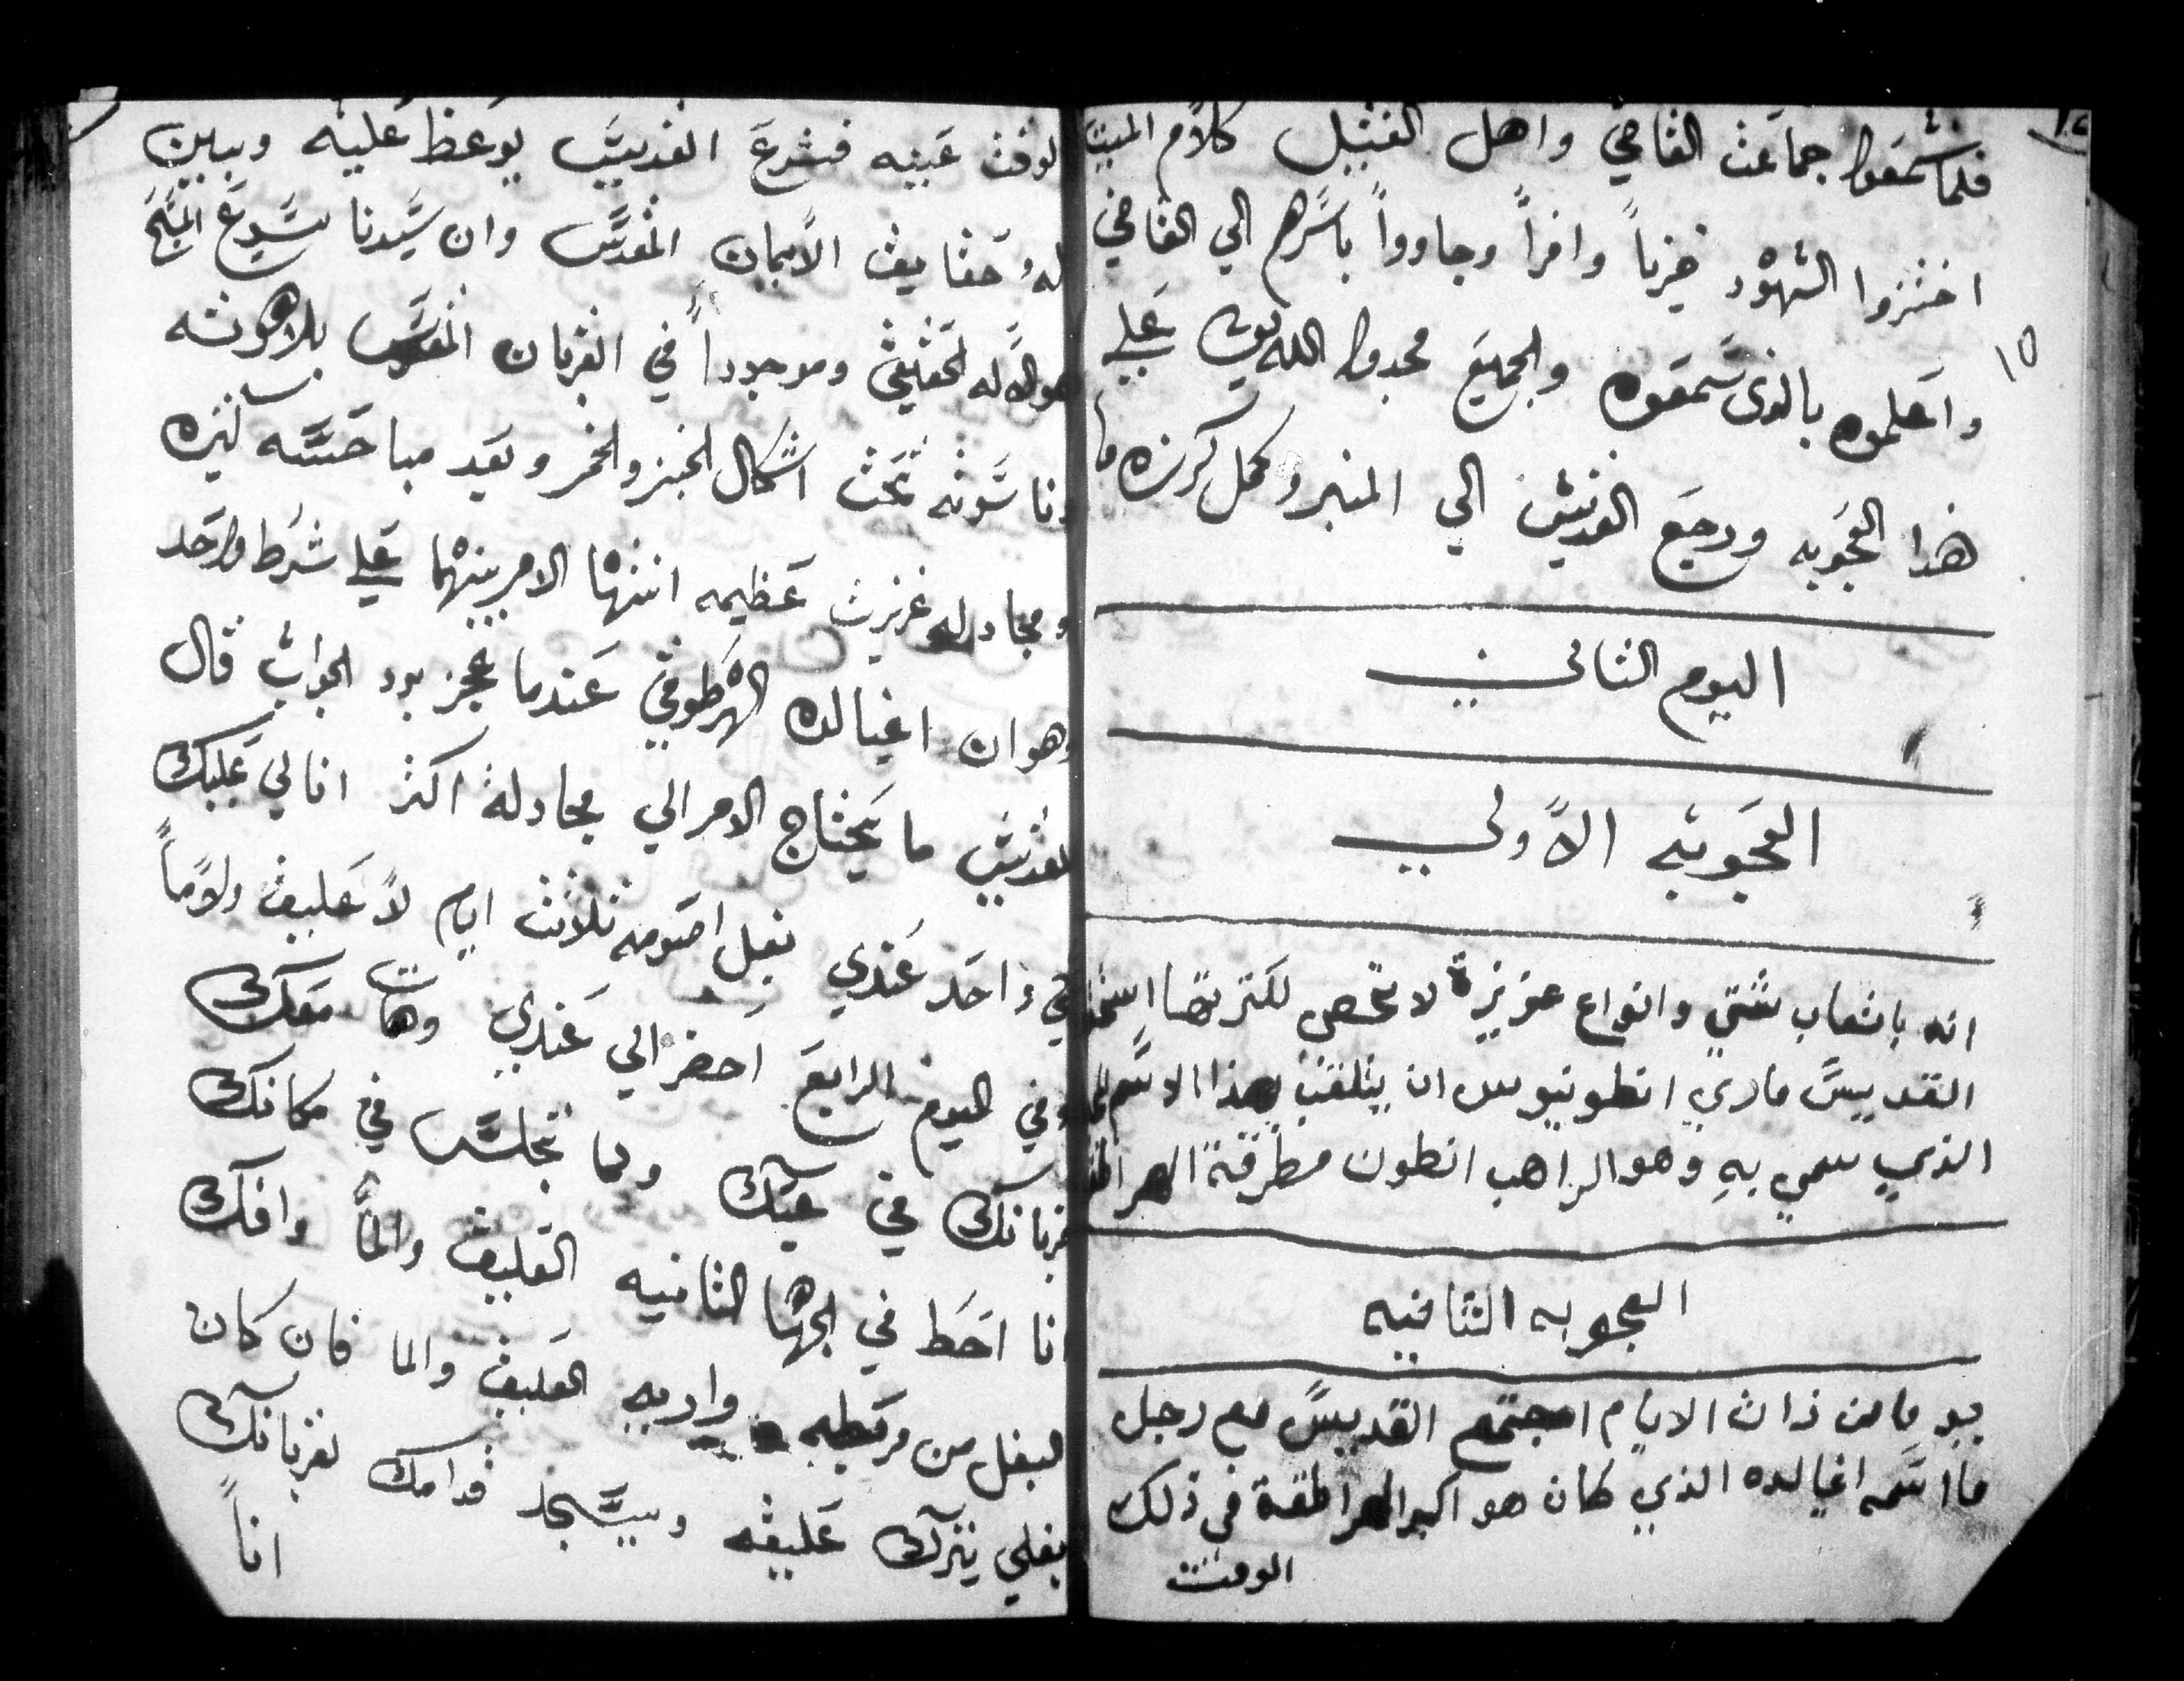 فلما سمعوا جماعت القاضي واهل القتيل كلام الميت
اختزوا الشهود خزياً وافراً وجاووا باسرهم الي القاضي
واعلموه بالذى سمعوه والجميع مجدوا الله علي
١٥
هذا العجوبه ورجع القديس الي المنبر وكمل كرزه
اليوم الثاني
العجوبه الاولي
انه باتعاب شتي وانواع عزيزة لا تحصي لكترتها استحق
القديس ماري انطونيوس ان يتلقب بهذا الاسم
الذي سمي به وهو الراهب انطون مطرقة الهراطقه
العجوبه الثانيه
يوما من ذات الايام اجتمع القديس مع رجل
ما اسمه اغيالده الذي كان هو اكبر الهراطقة في ذلك
الوقت
الوقت عينه فشرع القديس يوعظ عليه ويبين
له حقايق الايمان المقدس وان سيدنا يسوع المسيح
هو الاله الحقيقي وموجوداً في القربان المقدس بلاهوته
وناسوته تحت اشكال الخبز والخمر وبعد مباحسه كتيره
ومجادله غزيرت عظيمه انتها الامر بينهما علي شرط واحد
وهو ان اغيالده الهرطوقي عندما عجز برد الجواب قال
للقديس ما يحتاج الامر الي مجادلة اكثر انا لي عليك
في واحد عندي بغل اصومه ثلاثت ايام لا عليق ولا ماً
وفي اليوم الرابع احضر الي عندي وهات معك
قربانك في عبك ولما تجلس في مكانك
انا احط في الجها الثانيه العليق والماً وافك
البغل من مربطه واريه العليق والما فان كان
بغلي يترك عليقه ويسجد قدامك لقربانك
اناً